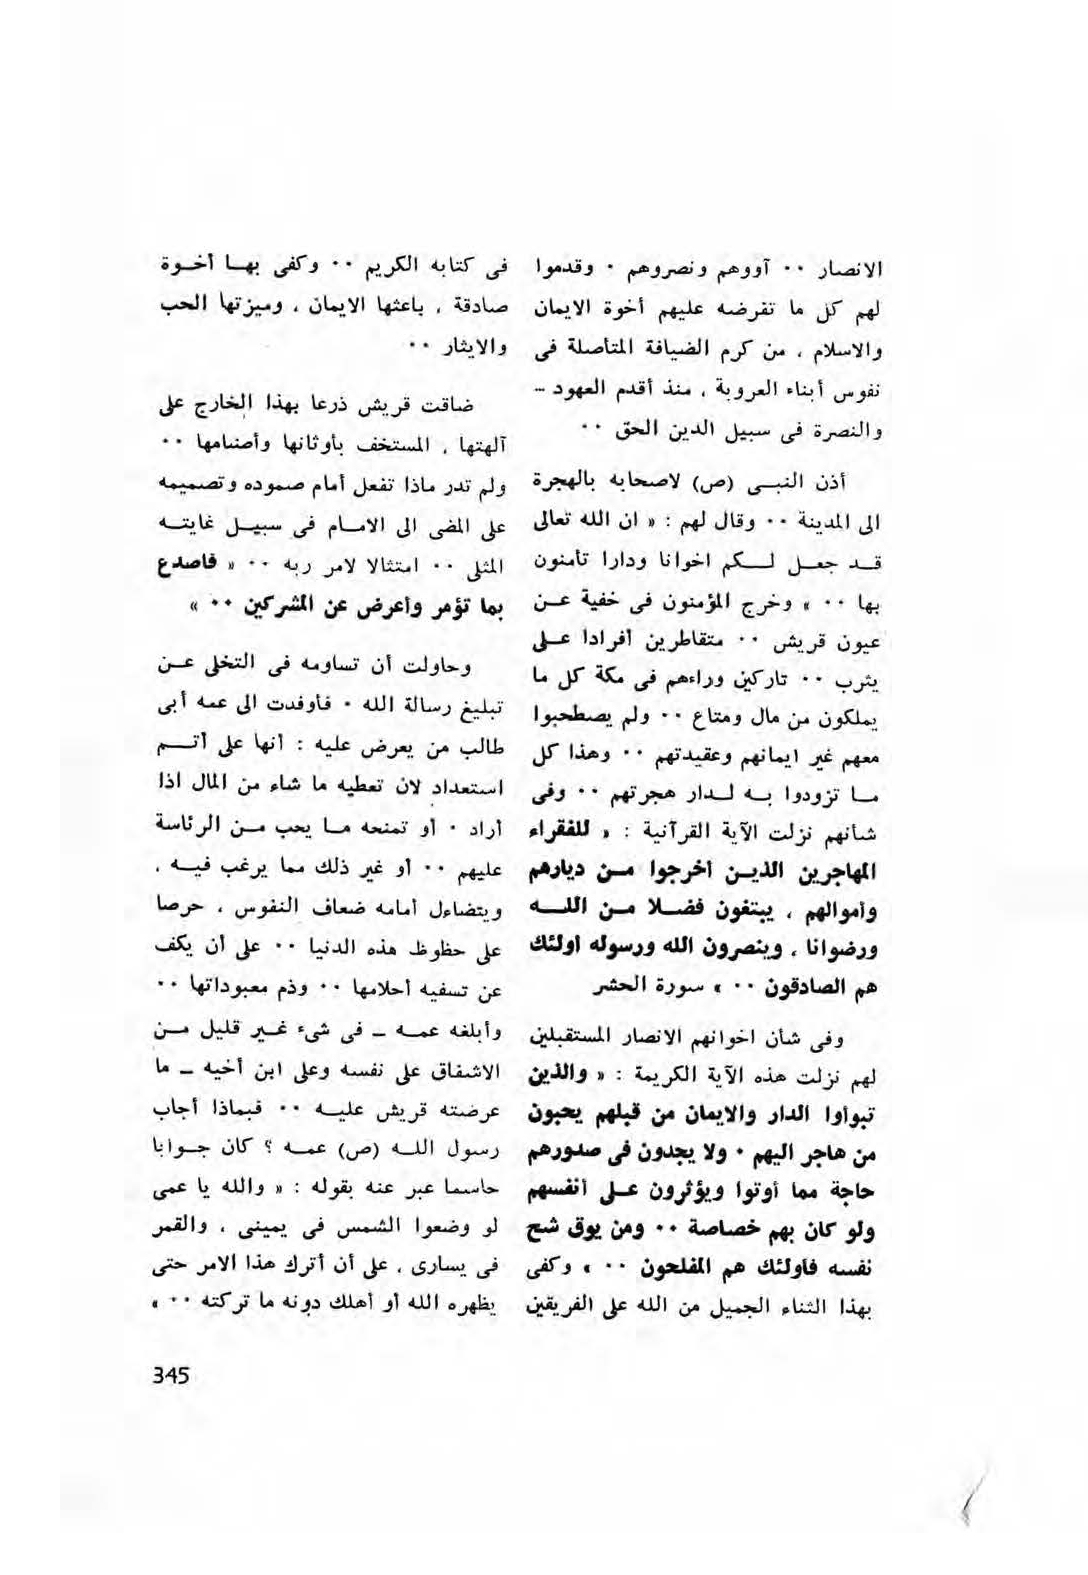 الانصار ٠٠ آووهم ونصروهم ٠ وقدموا
لهم كل ما تفرضه عليهم أخوة الايمان
والاسلام ، من كرم الضيافة المتأصلة فى
نفوس أبناء العروبة ، منذ أقدم العهود ــ
والنصرة فى سبيل الدين الحق ٠٠
أذن النبـى (ص) لاصحابه بالهجرة
الى المدينة ٠٠ وقال لهم : « ان الله تعالى
قـد جعـل لـكم اخوانا ودارا تأمنون
بها ٠٠ » وخرج المؤمنون فى خفية عـن
عيون قريش ٠٠ متقاطرين أفرادا عـلى
يثرب ٠٠ تاركين وراءهم فى مكة كل ما
يملكون من مال ومتاع ٠٠ ولم يصطحبوا
معهم غير ايمانهم وعقيدتهم ٠٠ وهذا كل
مـا تزودوا بـه لـدار هجرتهم ٠٠ وفى
شأنهم نزلت الآية القرآنية : « للفقراء
المهاجرين الذيـن أخرجوا مـن ديارهم
وأموالهم ، يبتغون فضـلا مـن اللـه
ورضوانا ، وينصرون الله ورسوله أولئك
هم الصادقون ٠٠ » سورة الحشر
وفى شأن اخوانهم الانصار المستقبلين
لهم نزلت هذه الآية الكريمة : « والذين
تبوأوا الدار والايمان من قبلهم يحبون
من هاجر اليهم ٠ ولا يجدون فى صدورهم
حاجة مما أوتوا ويؤثرون عـلى أنفسهم
ولو كان بهم خصاصة ٠٠ ومن يوق شح
نفسه فأولئك هم المفلحون ٠٠ » وكفى
بهذا الثناء الجميل من الله على الفريقين
فى كتابه الكريم ٠٠ وكفى بهـا أخـوة
صادقة ، باعثها الايمان ، وميزتها الحب
والايثار ٠٠
ضاقت قريش ذرعا بهذا الخارج على
آلهتها ، المستخف بأوثانها وأصنامها ٠٠
ولم تدر ماذا تفعل أمام صموده وتصميمه
على المضى الى الامـام فى سبيـل غايتـه
المثلى ٠٠ امتثالا لامر ربه ٠٠ « فاصدع
بما تؤمر وأعرض عن المشركين ٠٠ »
وحاولت أن تساومه فى التخلى عـن
تبليغ رسالة الله ٠ فأوفدت الى عمه أبى
طالب من يعرض عليه : أنها على أتـم
استعداد لان تعطيه ما شاء من المال اذا
أراد ٠ أو تمنحه مـا يحب مـن الرئاسة
عليهم ٠٠ أو غير ذلك مما يرغب فيـه ،
ويتضاءل أمامه ضعاف النفوس ، حرصا
على حظوظ هذه الدنيا ٠٠ على أن يكف
عن تسفيه أحلامها ٠٠ وذم معبوداتها ٠٠
وأبلغه عمـه ــ فى شىء غـير قليل مـن
الاشفاق على نفسه وعلى ابن أخيه ــ ما
عرضته قريش عليـه ٠٠ فبماذا أجاب
رسول اللـه (ص) عمـه ؟ كان جـوابا
حاسمـا عبر عنه بقوله : « والله يا عمى
لو وضعوا الشمس فى يمينى ، والقمر
فى يسارى ، على أن أترك هذا الامر حتى
يظهره الله أو أهلك دونه ما تركته ٠٠ »
345